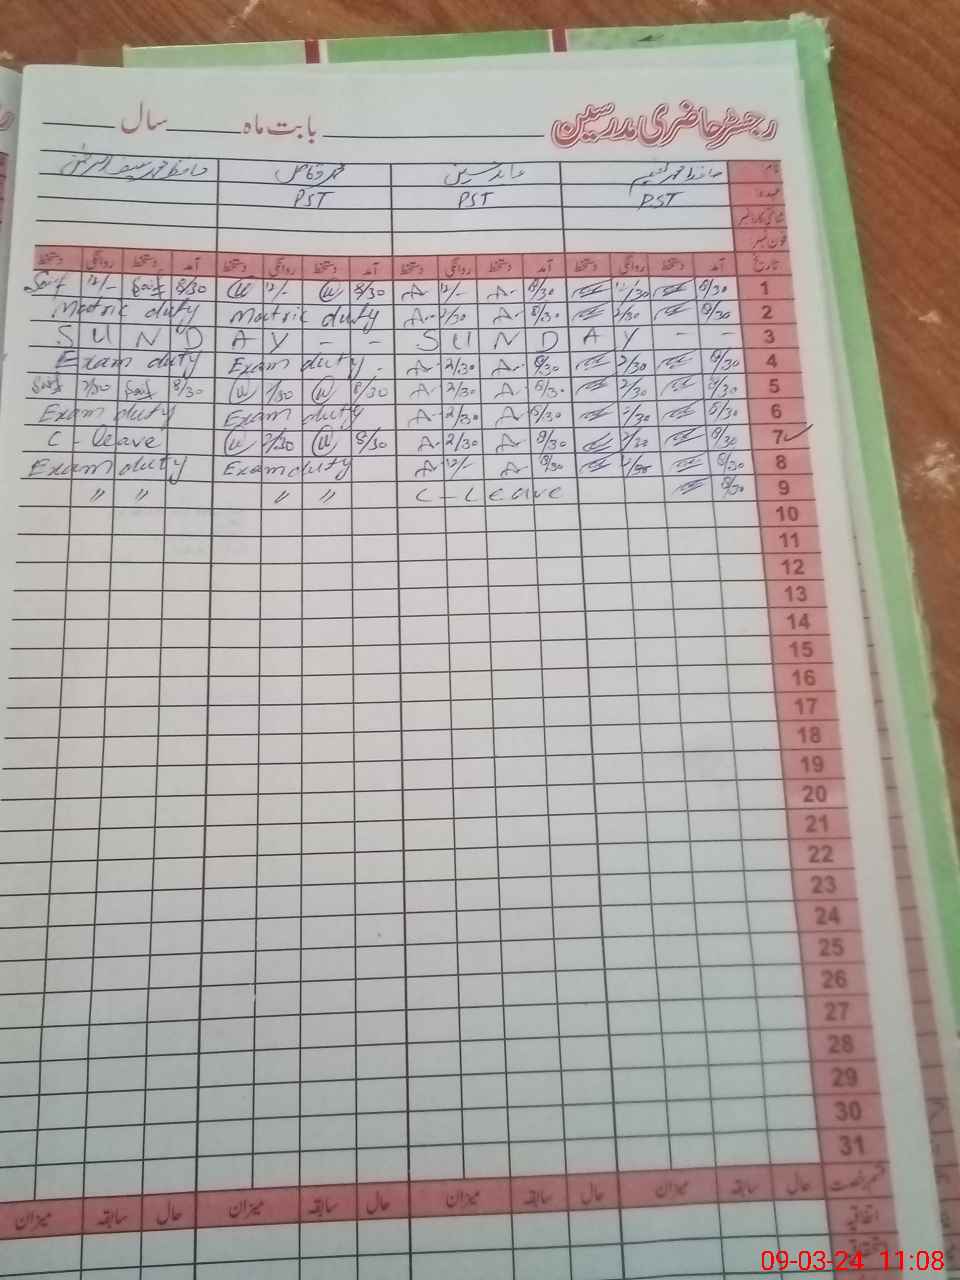 رجسٹر حاضری مدرسین بابت ماه ______ سال ______
نام حافظ محمد عابد حسین محمد وقاص حافظ محمد سیف
عہدہ PST PST PST
شناختی کارڈ نمبر
فون نمبر
تاریخ آمد دستخط روانگی دستخط آمد دستخط روانگی دستخط آمد دستخط روانگی دستخط آمد دستخط روانگی دستخط
Saif 12/- Saif 8/30 W 12/- W 8/30 A 12/- A 8/30 12/30 8/30 1
Matric duty Matric duty A 2/30 A 8/30 2/30 8/30 2
S U N D A Y - - S U N D A Y - - 3
Exam duty Exam duty A 2/30 A 8/30 2/30 8/30 4
Saif 2/30 Saif 8/30 W 2/30 W 8/30 A 2/30 A 8/30 2/30 8/30 5
Exam duty Exam duty A 2/30 A 8/30 2/30 8/30 6
C - leave W 2/30 W 8/30 A 2/30 A 8/30 2/30 8/30 7
Exam duty Exam duty A 12/- A 8/30 8/30 8
" " " " C - Leave 8/30 9
10
11
12
13
14
15
16
17
18
19
20
21
22
23
24
25
26
27
28
29
30
31
قسم رخصت حال سابقہ میزان حال سابقہ میزان حال سابقہ میزان حال سابقہ میزان
اتفاقیہ
09-03-24 11:08